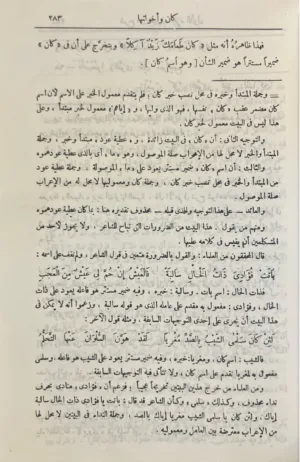 كان وأخواتها ٢٨٣
فهذا ظاهرُهُ أنه مثل « كان طَعَامَكَ زَيْدٌ آكِلاً » ويتخرَّج على أن فى « كان »
ضميراً مستتراً هو ضمير الشأن [ وهو اسمُ كان ] .
= وجملة المبتدأ وخبره فى محل نصب خبر كان ، فلم يتقدم معمول الخبر على الاسم لأن اسم
كان مضمر عقب « كان » ، وعلى
هذا ليس فى البيت معمول لخبر كان
والتوجيه الثانى : أن « كان » فى البيت زائدة ، و « عطية عود » مبتدأ وخبر ، وجملة
المبتدأ والخبر لا محل لها من الإعراب صلة الموصول ، وهو « ما » أى بالذى عطية عودهمو
والثالث : أن اسم « كان » ضمير مستتر يعود على « ما » الموصولة . وجملة عطية عود
من المبتدأ والخبر فى محل نصب خبر كان ، وجملة كان ومعموليها لا محل له من الإعراب
صلة الموصول
والعائد ـ على هذا التوجيه والذى قبله ـ محذوف تقديره هنا : بما كان عطية عودهموه
ومنهم من يقول : هذا البيت من الضرورات التى تباح للشاعر ، ولا يجوز لأحد من
المتكلمين أن يقيس فى كلامه عليها .
قال المحققون من العلماء : والقول بالضرورة متعين فى قول الشاعر ، ولم نقف على اسمه :
بَاتَتْ فُؤَادِىَ ذَاتُ الْخَالِ سَالِبَةً فَالْعَيْشُ إِنْ حُمَّ لِى عَيْشٌ مِنَ الْعَجَبِ
فذات الخال : اسم بات ، وسالبة : خبره ، وفيه ضمير مستتر هو فاعله يعود على ذات
الخال ، وفؤادى : مفعول به مقدم على عامله الذى هو قوله سالبة ، وزعموا أنه لا يمكن فى
هذا البيت أن يجرى على إحدى التوجيهات السابقة . ومثله قول الآخر :
لَئِنْ كَانَ سَلْمَى الشَّيْبُ بِالصَّدِّ مُغْرِيَا لَقَدْ هَوَّنَ السُّلْوَانَ عَنْهَا التَّحَلُّمُ
فالشيب : اسم كان ، ومغريا : خبره ، وفيه ضمير مستتر يعود على الشيب هو فاعله ، وسلمى
مفعول به لمغريا تقدم على اسم كان ، ولا تتأتى فيه التوجيهات السابقة .
ومن العلماء من خرج هذين البيتين تخريجاً عجيباً ؛ فزعم أن « فؤادى » منادى بحرف
نداء محذوف ، وكذلك « سلمى » وكأن الشاعر قد قال : باتت يا فؤادى ذات الخال سالبة
إياك ، ولئن كان يا سلمى الشيب مغريا إياك بالصد ، وجملة النداء فى البيتين لا محل لها
من الإعراب معترضة بين العامل ومعموليه .